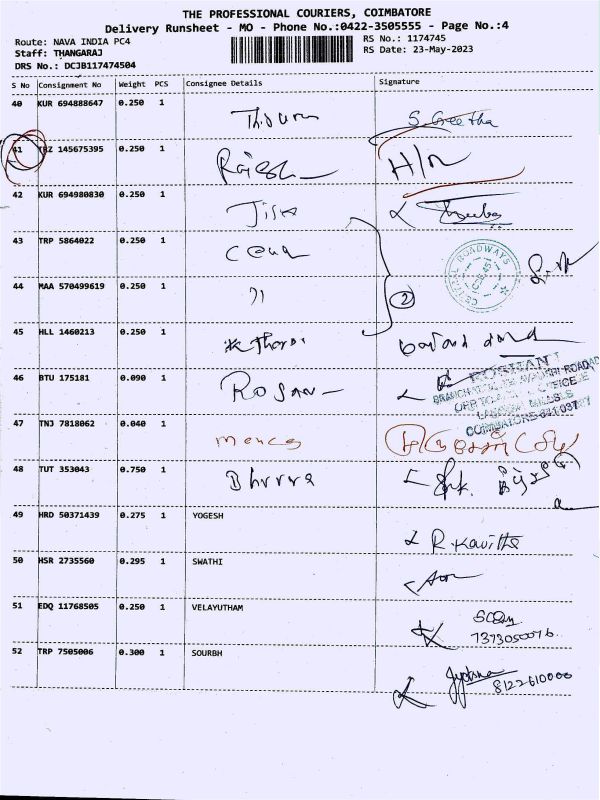 THE PROFESSIONAL COURIERS, COIMBATORE
Delivery Runsheet - MO - Phone No.:0422-3505555 - Page No.:4
Route: NAVA INDIA PC4 RS No.: 1174745
Staff: THANGARAJ RS Date: 23-May-2023
DRS No.: DCJB117474504
S No Consignment No Weight PCS Consignee Details Signature
40 KUR 694888647 0.250 1 S. Geetha
41 TRZ 145675395 0.250 1 Rajesh H/N
42 KUR 694980830 0.250 1
43 TRP 5864022 0.250 1
CENTRAL ROADWAYS
44 MAA 570499619 0.250 1 2
45 HLL 1460213 0.250 1
46 BTU 175181 0.090 1 ROSAN
47 TNJ 7818062 0.040 1
48 TUT 353043 0.750 1
49 HRD 50371439 0.275 1 YOGESH R. Kavitha
50 HSR 2735560 0.295 1 SWATHI
51 EDQ 11768505 0.250 1 VELAYUTHAM
7373050076
52 TRP 7505006 0.300 1 SOURBH
8122610000